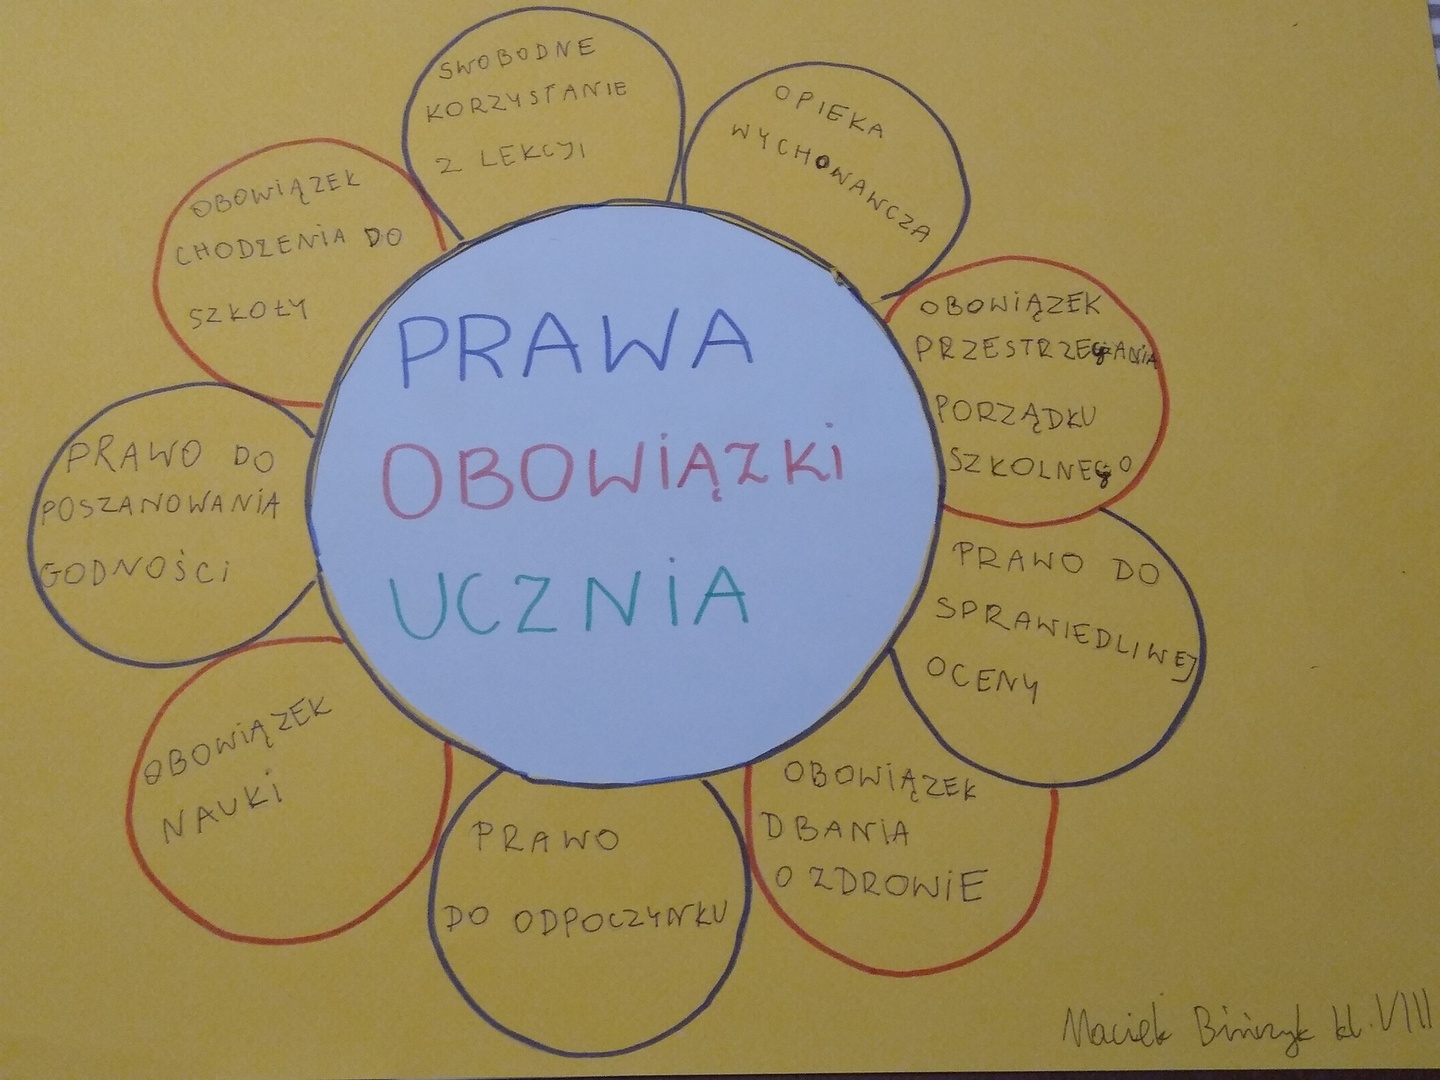 PRAWA
OBOWIĄZKI
UCZNIA
SWOBODNE
KORZYSTANIE
Z LEKCJI
OPIEKA
WYCHOWAWCZA
OBOWIĄZEK
PRZESTRZEGANIA
PORZĄDKU
SZKOLNEGO
PRAWO DO
SPRAWIEDLIWEJ
OCENY
OBOWIĄZEK
DBANIA
O ZDROWIE
PRAWO
DO ODPOCZYNKU
OBOWIĄZEK
NAUKI
PRAWO DO
POSZANOWANIA
GODNOŚCI
OBOWIĄZEK
CHODZENIA DO
SZKOŁY
Maciek Bińczyk kl. VIII